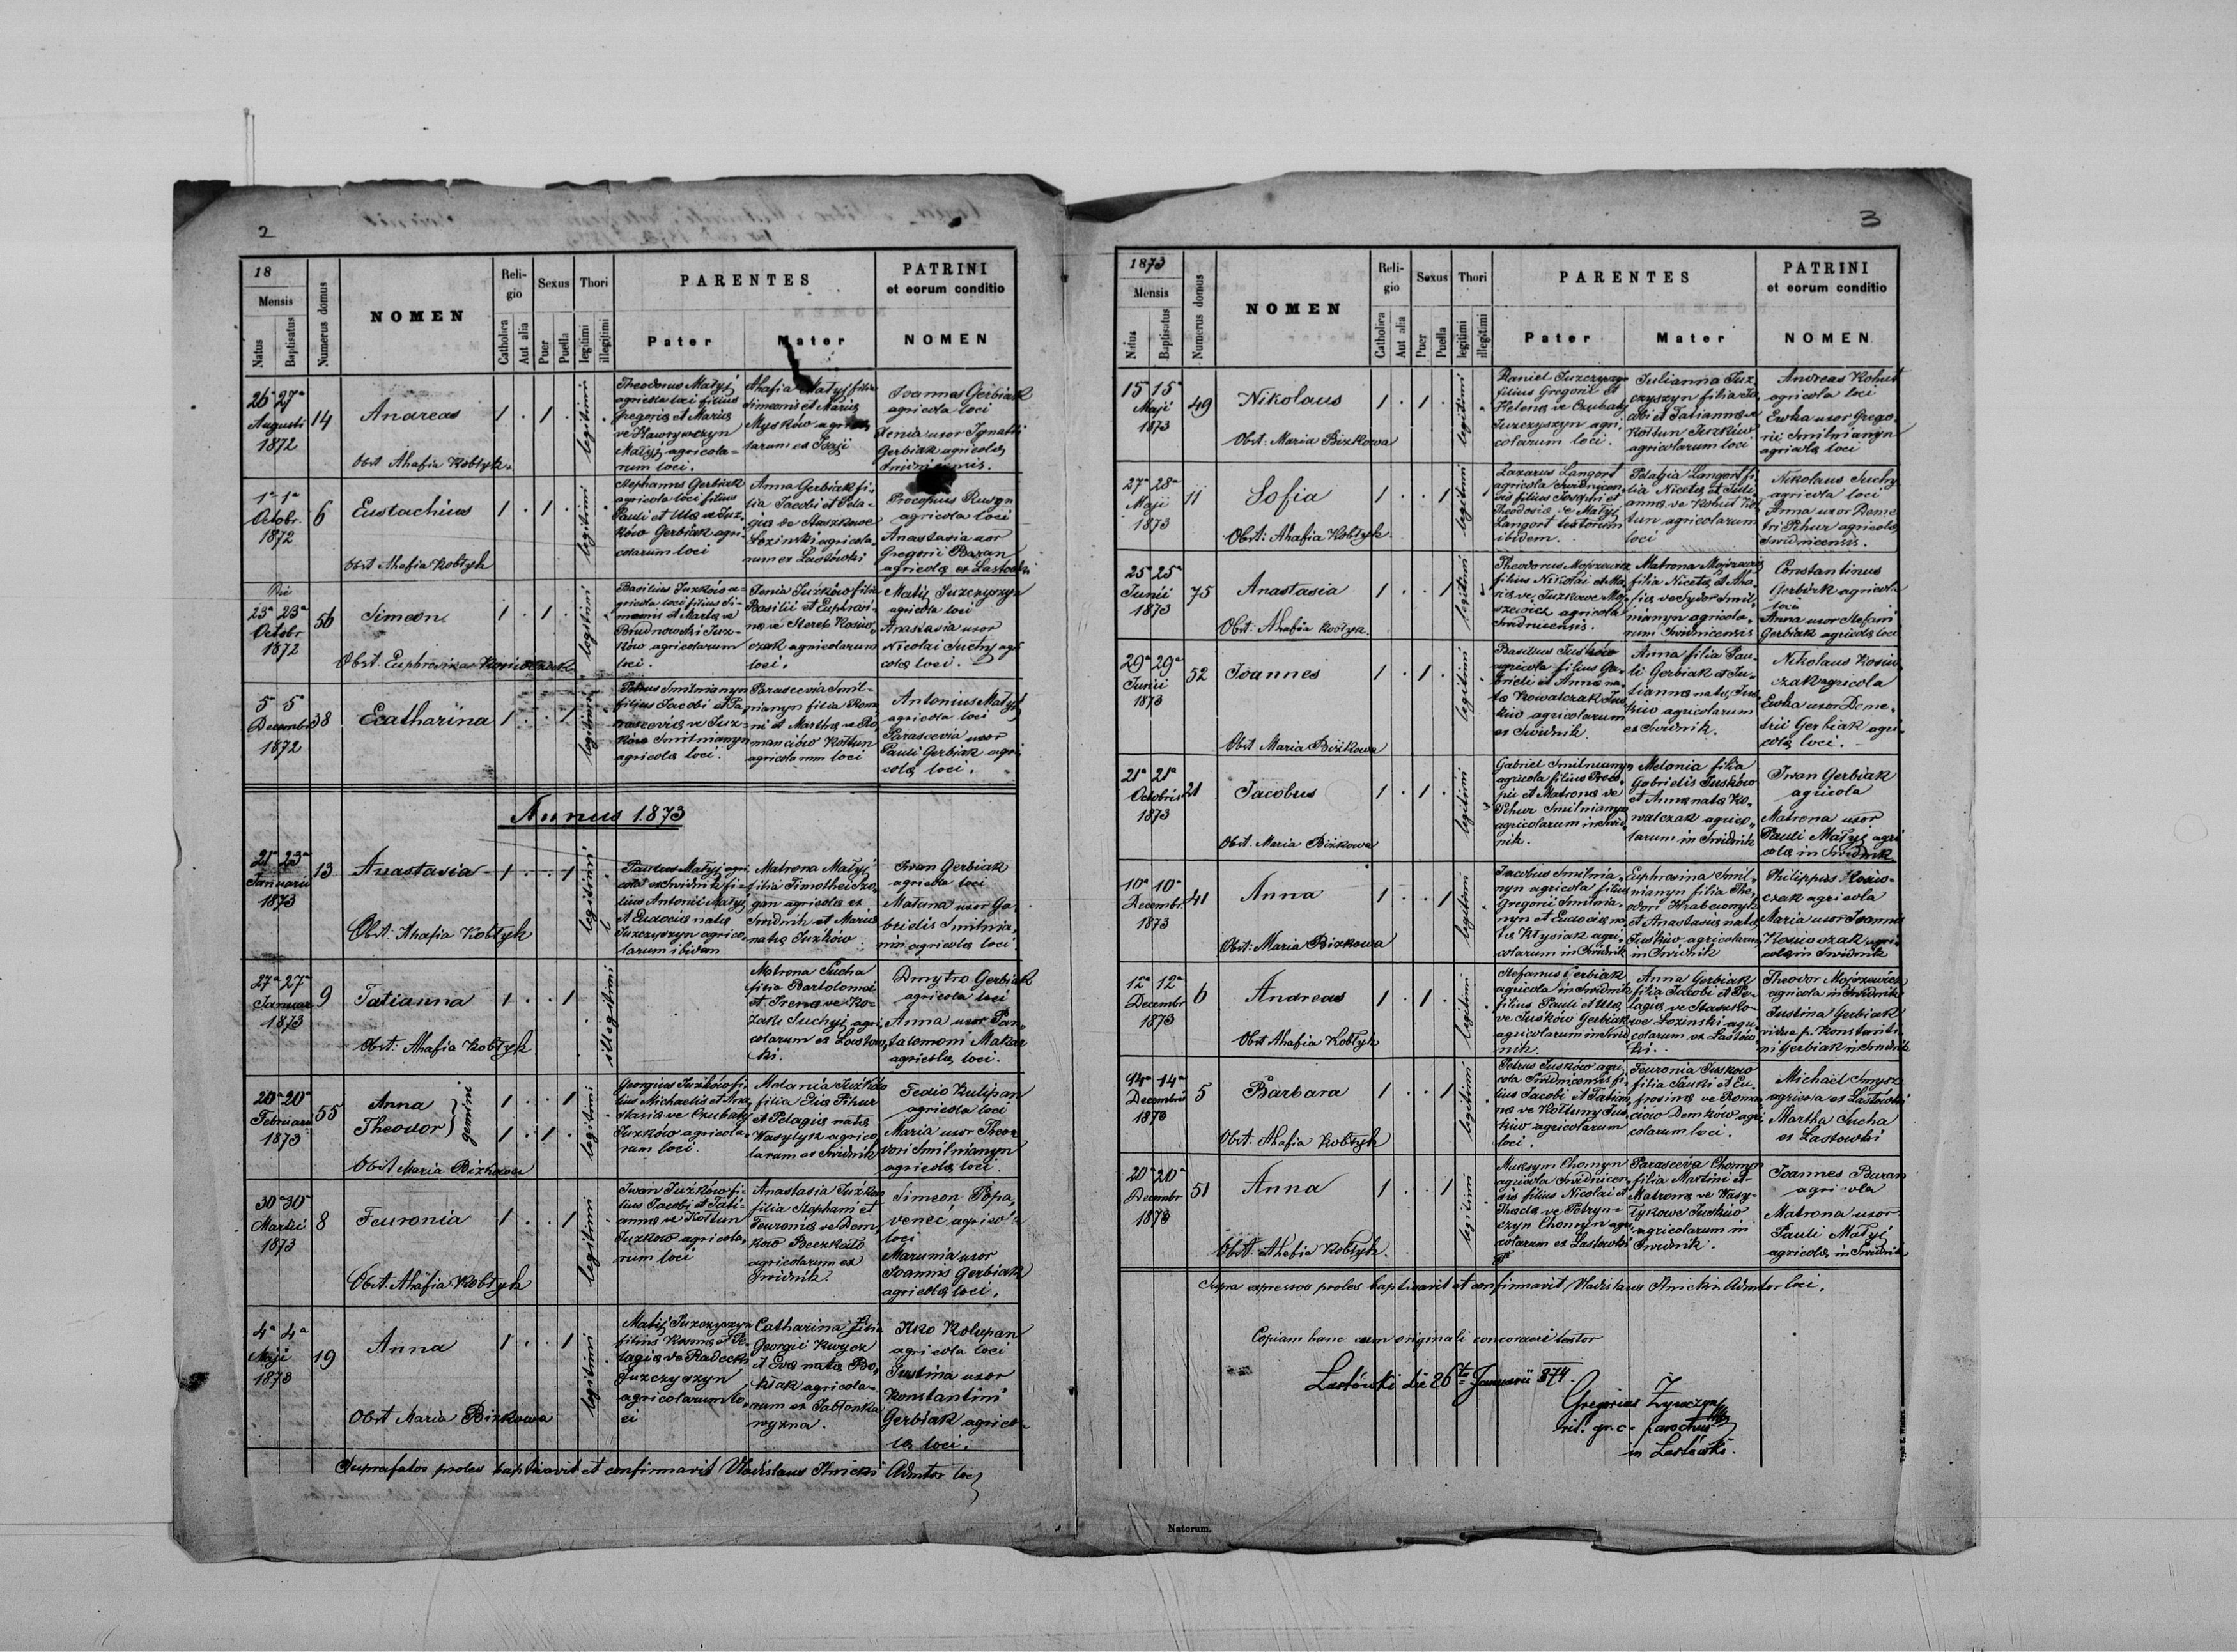 2
18
Mensis
Natus
Baptisatus
Numerus domus
NOMEN
Reli-
gio
Catholica
Aut alia
Sexus
Puer
Puella
Thori
legitimi
illegitimi
PARENTES
Pater
Mater
PATRINI
et eorum conditio
NOMEN
26 27a
Augusti
1872
14
Andreas
Obst Ahafia Kobłyk
1 . 1 .
legitimi
Theodorus Małyj
agricola loci filius
Gregorii et Maria
ve Hawryszczyn
Małyj agricola=
rum loci.
Ahafia Małyj filia
Simeonis et Maria
Mysków agrico
larum ex Isaji
Ioannes Gerbiak
agricola loci
Xenia uxor Ignatii
Gerbiak agricola
Świdnicensis.
1a 1a
Octobr.
1872
6
Eustachius
Obst Ahafia Kobłyk
1 . 1 .
legitimi
Stephanus Gerbiak
agricola loci filius
Pauli et Ula ve Juz-
ków Gerbiak agri-
colarum loci
Anna Gerbiak fi-
lia Jacobi et Pela-
gia ve Staszkowe
Lozinski agricola-
rum ex Lastówki
Procopius Rusyn
agricola loci
Anastasia uxor
Gregorii Baran
agricola ex Lastowki
Die
23a 23a
Octobr
1872
56
Simeon
Obst. Euphrosina
1 . 1 .
legitimi
Basilius Juzków a-
gricola loci filius Si-
meonis et Marta ve
Brudnowski Juz-
ków agricolarum
loci.
Xenia Juzków filia
Basilii et Euphrosi-
na ve Steref Kosiw
czak agricolarum
loci.
Matij Juzczyszyn
agricola loci
Anastasia uxor
Nicolai Suchy agri
cola loci.
5 5
Decembr
1872
38
Ecatharina
1 . . 1
legitimi
Petrus Smilnianyn
filius Jacobi et Pa-
rascevia ve Juz-
ków Smilnianyn
agricola loci.
Parascevia Smil-
nianyn filia Rom
ni et Martha ve Ro
manciów Kołtun
agricolarum loci
Antonius Małyj
agricola loci
Parascevia uxor
Pauli Gerbiak agri
cola loci.
Annus 1873
21a 23a
Januarii
1873
13
Anastasia
Obst: Ahafia Kobłyk
1 . . 1
legitimi
Paulus Małyj agri
cola ex Świdnik fi-
lius Antonii Małyj
et Eudocia nata
Juzczyszyn agrico
larum ibidem
Matrona Małyj
filia Timothei
gan agricola ex
Świdnik et Maria
nata Juzków
Iwan Gerbiak
agricola loci
Matrona uxor Ga-
brielis Smilnia,
nin agricola loci.
27a 27a
Januar
1873
9
Tatianna
Obst: Ahafia Kobłyk
1 . . 1
illegitimi
Matrona Sucha
filia Bartolomei
et Irena ve Ko-
zaki Suchyj agri
colarum ex Lastow
ki.
Dmytro Gerbiak
agricola loci
Anna uxor Pan
talemoni Makar
agricola loci.
20a 20a
Februarii
1873
55
Anna
Theodor
gemini
Obst Maria Bizkowa
1 . . 1
1 . 1 .
legitimi
Georgius Juzków fi-
lius Michaelis et Ana
stasia ve Czubatyj
Juzków agricola-
rum loci.
Melania Juzków
filia Elia Pihur
et Pelagia nata
Wasylyk agrico
larum ex Świdnik
Fedio Kulipan
agricola loci
Maria uxor Theo
dori Smilnianyn
agricola loci.
30a 30
Martii
1873
8
Feuronia
Obst. Ahafia Kobłyk
1 . . 1
legitimi
Iwan Juzków fi-
lius Jacobi et Tati-
anna ve Kołtun
Juzków agricola,
rum loci
Anastasia Juzków
filia Stephani et
Feuronia ve Dem
ków
agricolarum ex
Świdnik.
Simeon Popa,
venec agricola
loci
Marunia uxor
Ioannis Gerbiak
agricola loci.
4a 4a
Maji
1873
19
Anna
Obst Maria Bizkowa
1 . . 1
legitimi
Matij Juzczyszyn
filius Kosma et Pe
lagia ve Radecki
Juzczyszyn
agricolarum lo,
ci
Catharina filia
Georgii
et Eva nata Bo,
agricola-
rum ex Jabłonka
wyzna.
Ilko Kolupan
agricola loci
Justina uxor
Konstantini
Gerbiak agrico-
la loci.
Suprafatos proles baptisavit et confirmavit Vladislaus Ilnicki Admtor loci
3
1873
Mensis
Natus
Baptisatus
Numerus domus
NOMEN
Reli-
gio
Catholica
Aut alia
Sexus
Puer
Puella
Thori
legitimi
illegitimi
PARENTES
Pater
Mater
PATRINI
et eorum conditio
NOMEN
15 15a
Maji
1873
49
Nikolaus
Obst: Maria Bizkowa
1 . 1 .
legitimi
Daniel Juzczyszyn
filius Gregorii et
Helena ve Czubaty
Juzczyszyn agri-
colarum loci.
Julianna Juz,
czyszyn filia Ja
cobi et Tatianna ve
Kołtun Juzków
agricolarum loci
Andreas Kohut
agricola loci
Ewka uxor Grego-
rii Smilnianyn
agricola loci
27a 28a
Maji
1873
11
Sofia
Obst: Ahafia Kobłyk
1 . . 1
legitimi
Lazarus Langort
agricola Świdnicen
sis filius Josephi et
Theodosia ve Małyj
Langort textorum
ibidem.
Pelagia Langort fi
lia Niceta et Juli
anna ve Kohut Koł
tun agricolarum
loci
Nikolaus Suchy
agricola loci
Anna uxor Deme
trii Pihur agricola
Świdnicensis.
25a 25a
Junii
1873
75
Anastasia
Obst: Ahafia Kobłyk
1 . . 1
legitimi
Theodorus Mojzewicz
filius Nikolai et Ma
ria ve Juzkowe Moj
szewicz agricola
Świdnicensis.
Matrona Mojzewicz
filia Niceta et Aha-
fia ve Sydor Smil-
nianyn agricola-
rum Świdnicensis
Constantinus
Gerbiak agricola
loci
Anna uxor Stefani
Gerbiak agricola loci
29a 29a
Junii
1873
52
Ioannes
Obst Maria Bizkowa
1 . 1 .
legitimi
Basilius Juzków
agricola filius Ga-
brieli et Anna na-
ta Kowalczak Juz
ków agricolarum
ex Świdnik.
Anna filia Pau-
li Gerbiak et Ju-
lianna nata Juz
ków agricolarum
ex Świdnik.
Nikolaus Kosiw
czak agricola
Ewka uxor Deme-
trii Gerbiak agri-
cola loci.
21a 21a
Octobris
1873
21
Jacobus
Obst. Maria Bizkowa
1 . 1 .
legitimi
Gabriel Smilnianyn
agricola filius Proco,
pii et Matrona ve
Pihur Smilnianyn
agricolarum in Świd
nik.
Melania filia
Gabrielis Juzków
et Anna nata Ko-
walczak agrico,
larum in Świdnik
Iwan Gerbiak
agricola
Matrona uxor
Pauli Małyj agri
cola in Świdnik
10a 10a
Decembr.
1873
41
Anna
Obst: Maria Bizkowa
1 . . 1
legitimi
Jacobus Smilnia,
nyn agricola filius
Gregorii Smilnia,
nyn et Eudocia na
ta Kłysiak agri,
colarum in Świdnik
Euphrosina Smil-
nianyn filia The,
odori
et Anastasia nata
Juzków agricolarum
in Świdnik
Philippus Kosiw-
czak agricola
Maria uxor Joannis
Kosiwczak agri
cola in Świdnik
12a 12a
Decembr
1873
6
Andreas
Obst Ahafia Kobłyk
1 . 1 .
legitimi
Stefanus Gerbiak
agricola in Świdnik
filius Pauli et Ula
ve Juzków Gerbiak
agricolarum in Świd
nik.
Anna Gerbiak
filia Jacobi et Pe-
lagia ve Staszko-
we Lozinski agri-
colarum ex Lastów
ki.
Theodor Mojzewicz
agricola in Świdnik
Justina Gerbiak
vidua p. Konstanti
ni Gerbiak in Świdnik
14a 14a
Decembris
1873
5
Barbara
Obst. Ahafia Kobłyk
1 . . 1
legitimi
Petrus Juzków agri,
cola Świdnicensis fi-
lius Jacobi et Tatian
na ve Kołtuny Juz
ków agricolarum
loci.
Feuronia Juzkow
filia Pauli et Eu,
frosina ve Roman
ciów Demków agri
colarum loci.
Michael Smysz
agricola ex Lastowki
Martha Sucha
ex Lastowki
20a 20a
Decembr
1873
51
Anna
Obst. Ahafia Kobłyk.
1 . . 1
legitimi
Maksym Chomyn
agricola Świdnicen
sis filius Nicolai et
Thecla ve Petryn-
czyn Chomyn agri,
colarum ex Lastowki
Parasceva Chomyn
filia Martini et
Matrona ve Wasy-
łykowe Juzków
agricolarum in
Świdnik.
Ioannes Baran
agricola
Matrona uxor
Pauli Małyj
agricola in Świdnik
Supra expressos proles baptisavit et confirmavit Vladislaus Ilnicki Admtor loci.
Copiam hanc cum originali concordare testor
Lastówki die 26ta Januarii 874.
Gregorius
rit. gr. c. parochus
in Lastówki.
Natorum.